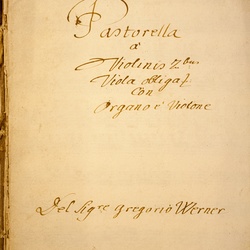 Pastorella
a
Violinis 2bus
Viola obligat
Con
Organo è Violone
Del Sigre Gregorio Werner